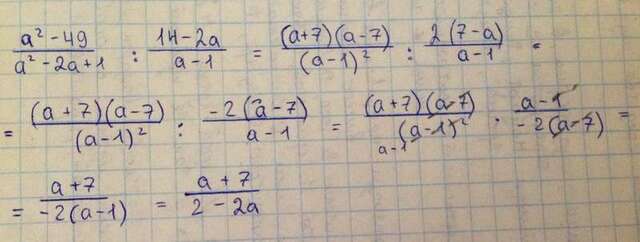 (a² - 49)/(a² - 2a + 1) : (14 - 2a)/(a - 1) = ((a+7)(a-7))/((a-1)²) : (2(7-a))/(a-1) =
= ((a+7)(a-7))/((a-1)²) : (-2(a-7))/(a-1) = ((a+7)(a-7))/((a-1)²) · (a-1)/(-2(a-7)) =
a-1
= (a+7)/(-2(a-1)) = (a+7)/(2-2a)